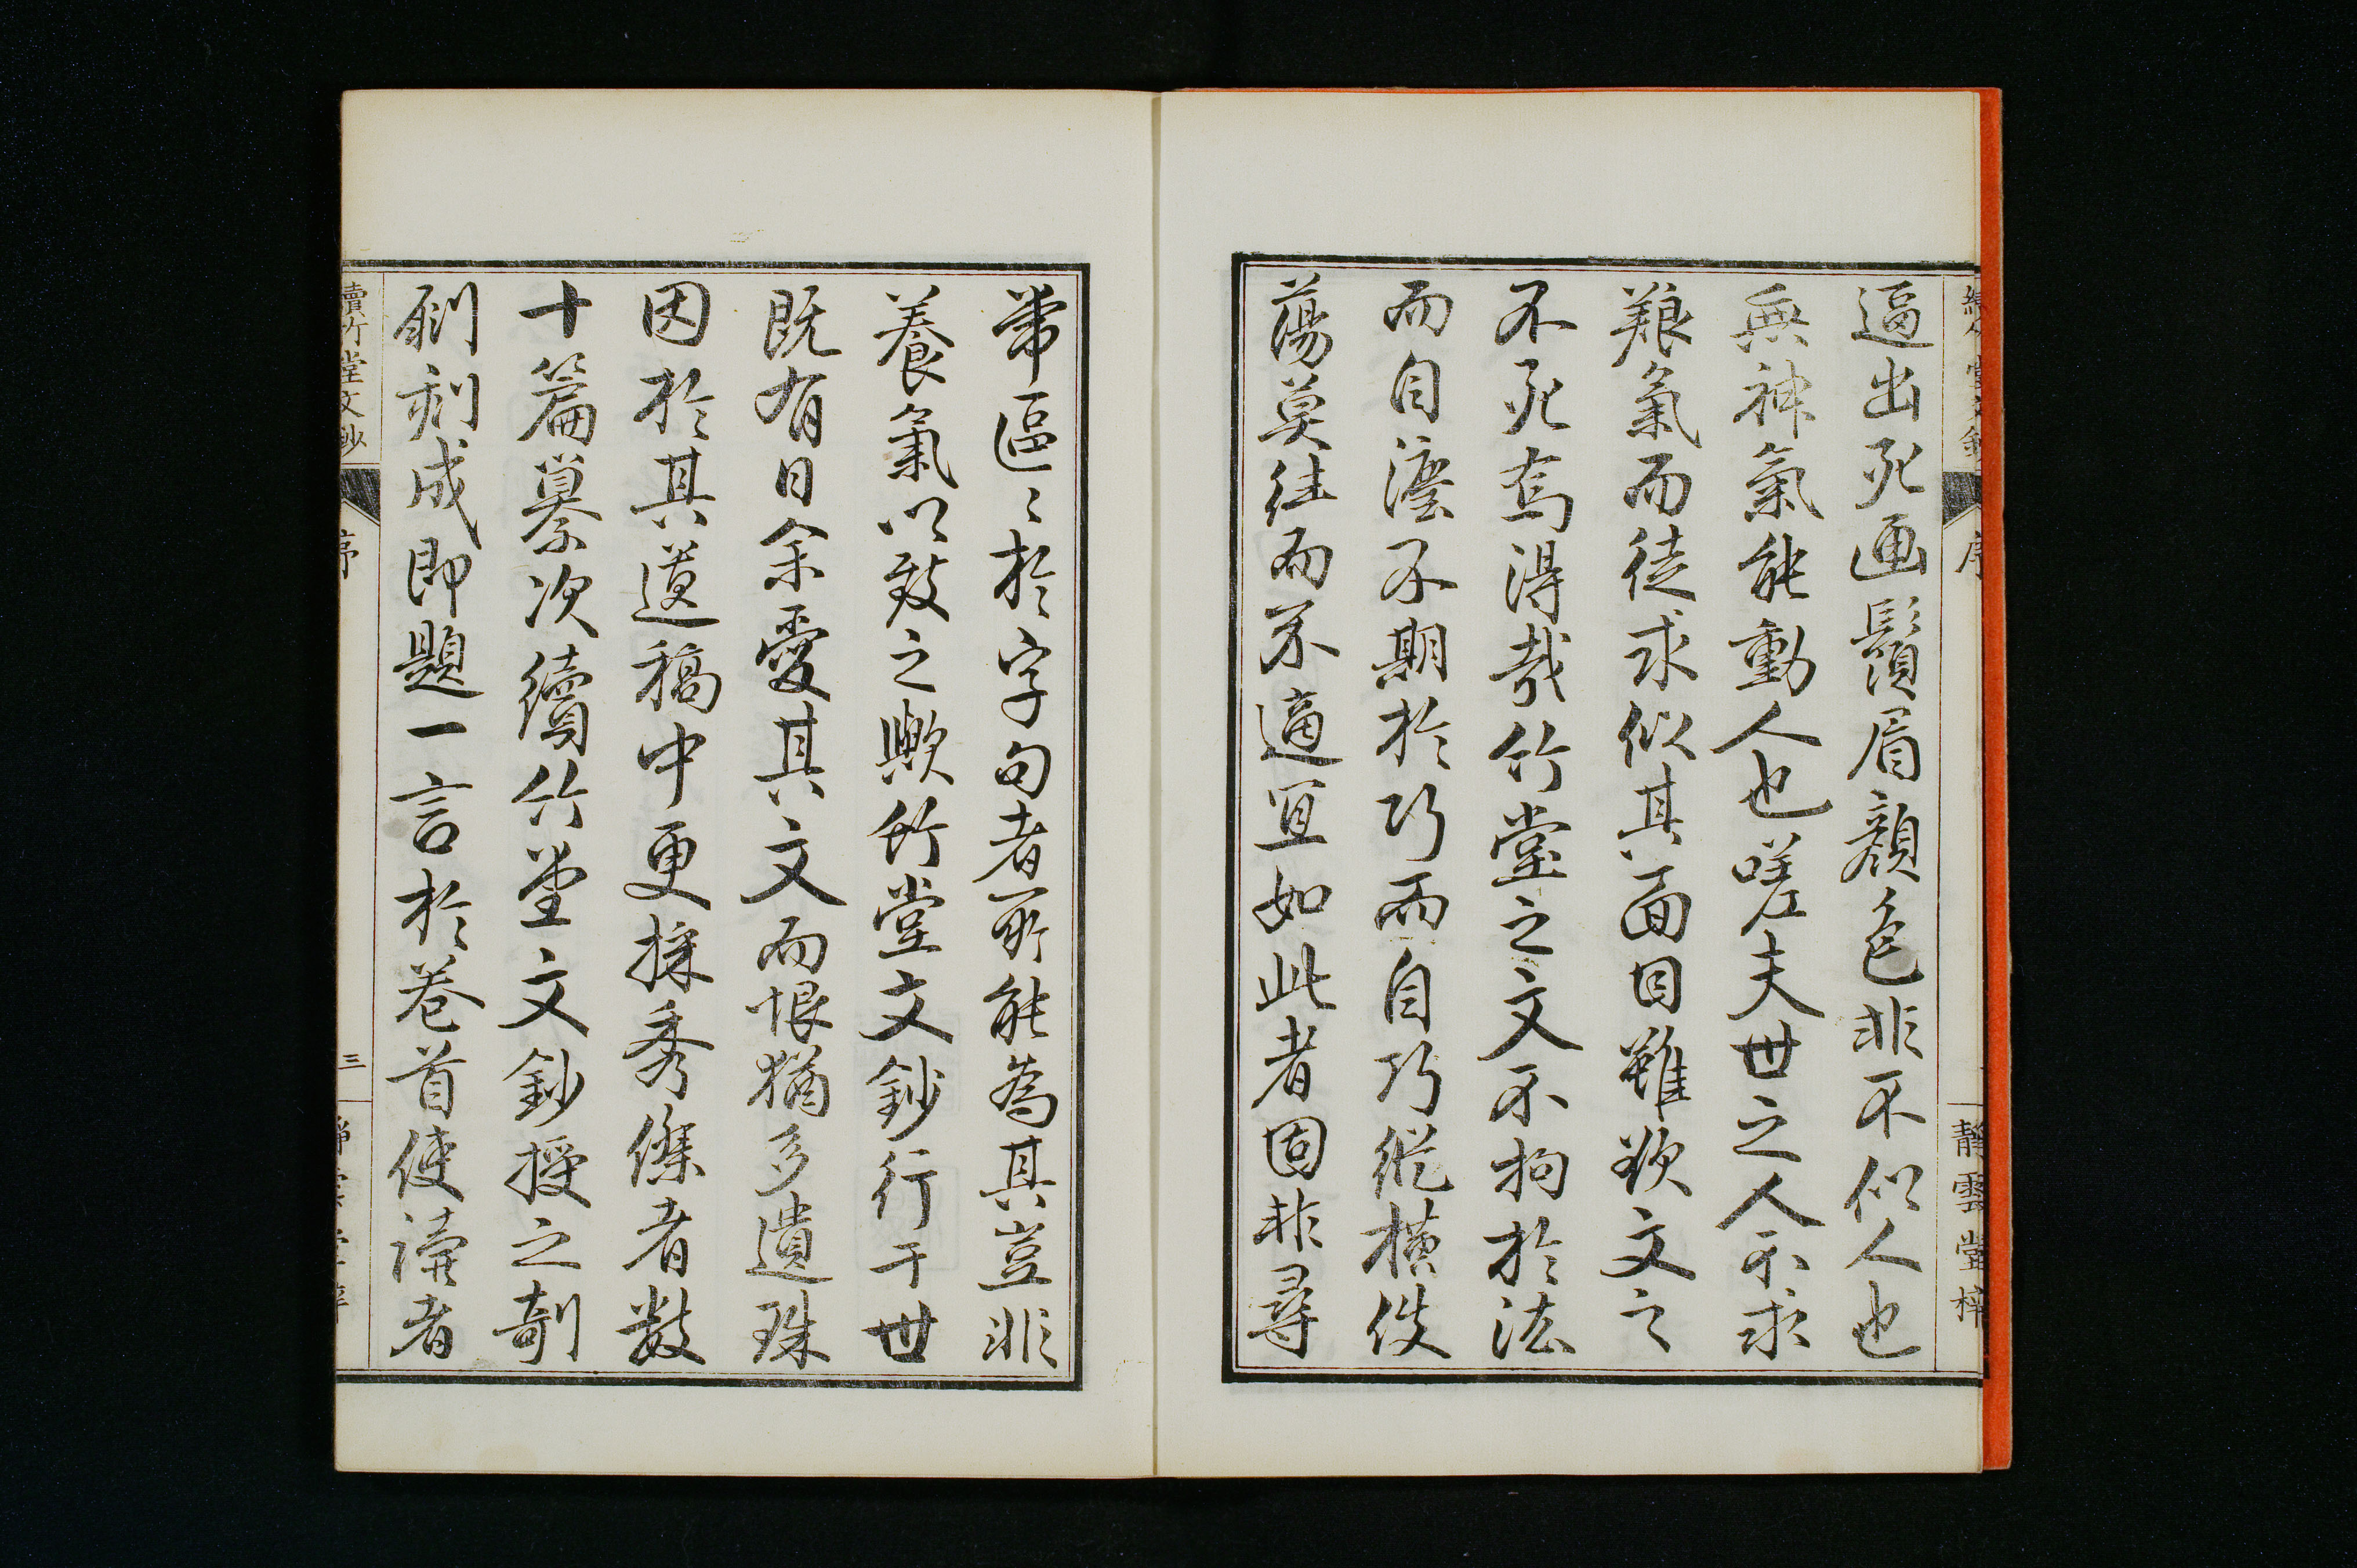 逼出死画鬚眉顔色非不似人也
無神氣能動人也嗟夫世之人不求
養氣而徒求似其面目雖欲文之
不死焉得哉竹堂之文不拘於法
而自法不期於巧而自巧縱橫佚
蕩莫往而不適宜如此者固非尋
常區〻於字句者所能為其豈非
養氣以致之歟竹堂文鈔行于世
既有日余愛其文而恨猶多遺珠
因於其遺稿中更採秀傑者数
十篇纂次續竹堂文鈔授之剞
劂刻成即題一言於巻首使讀者
續竹堂文鈔
序
三
靜雲堂梓